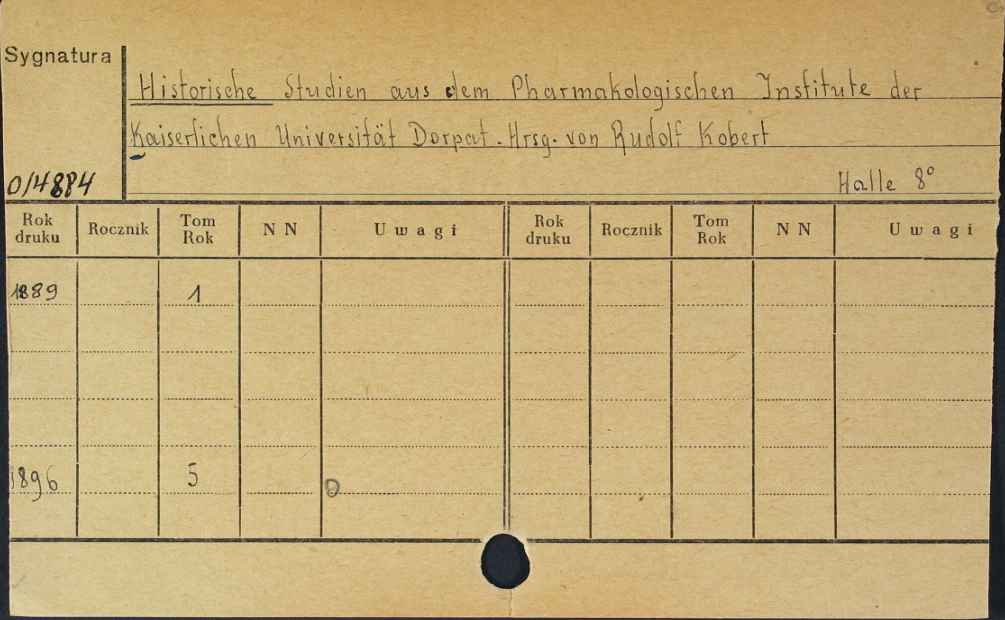 Sygnatura
Historische Studien aus dem Pharmakologischen Institute der
Kaiserlichen Universität Dorpat. Hrsg. von Rudolf Kobert
0/4884
Halle 8°
Rok druku Rocznik Tom Rok NN Uwagi Rok druku Rocznik Tom Rok NN Uwagi
1889 1
1896 5 0